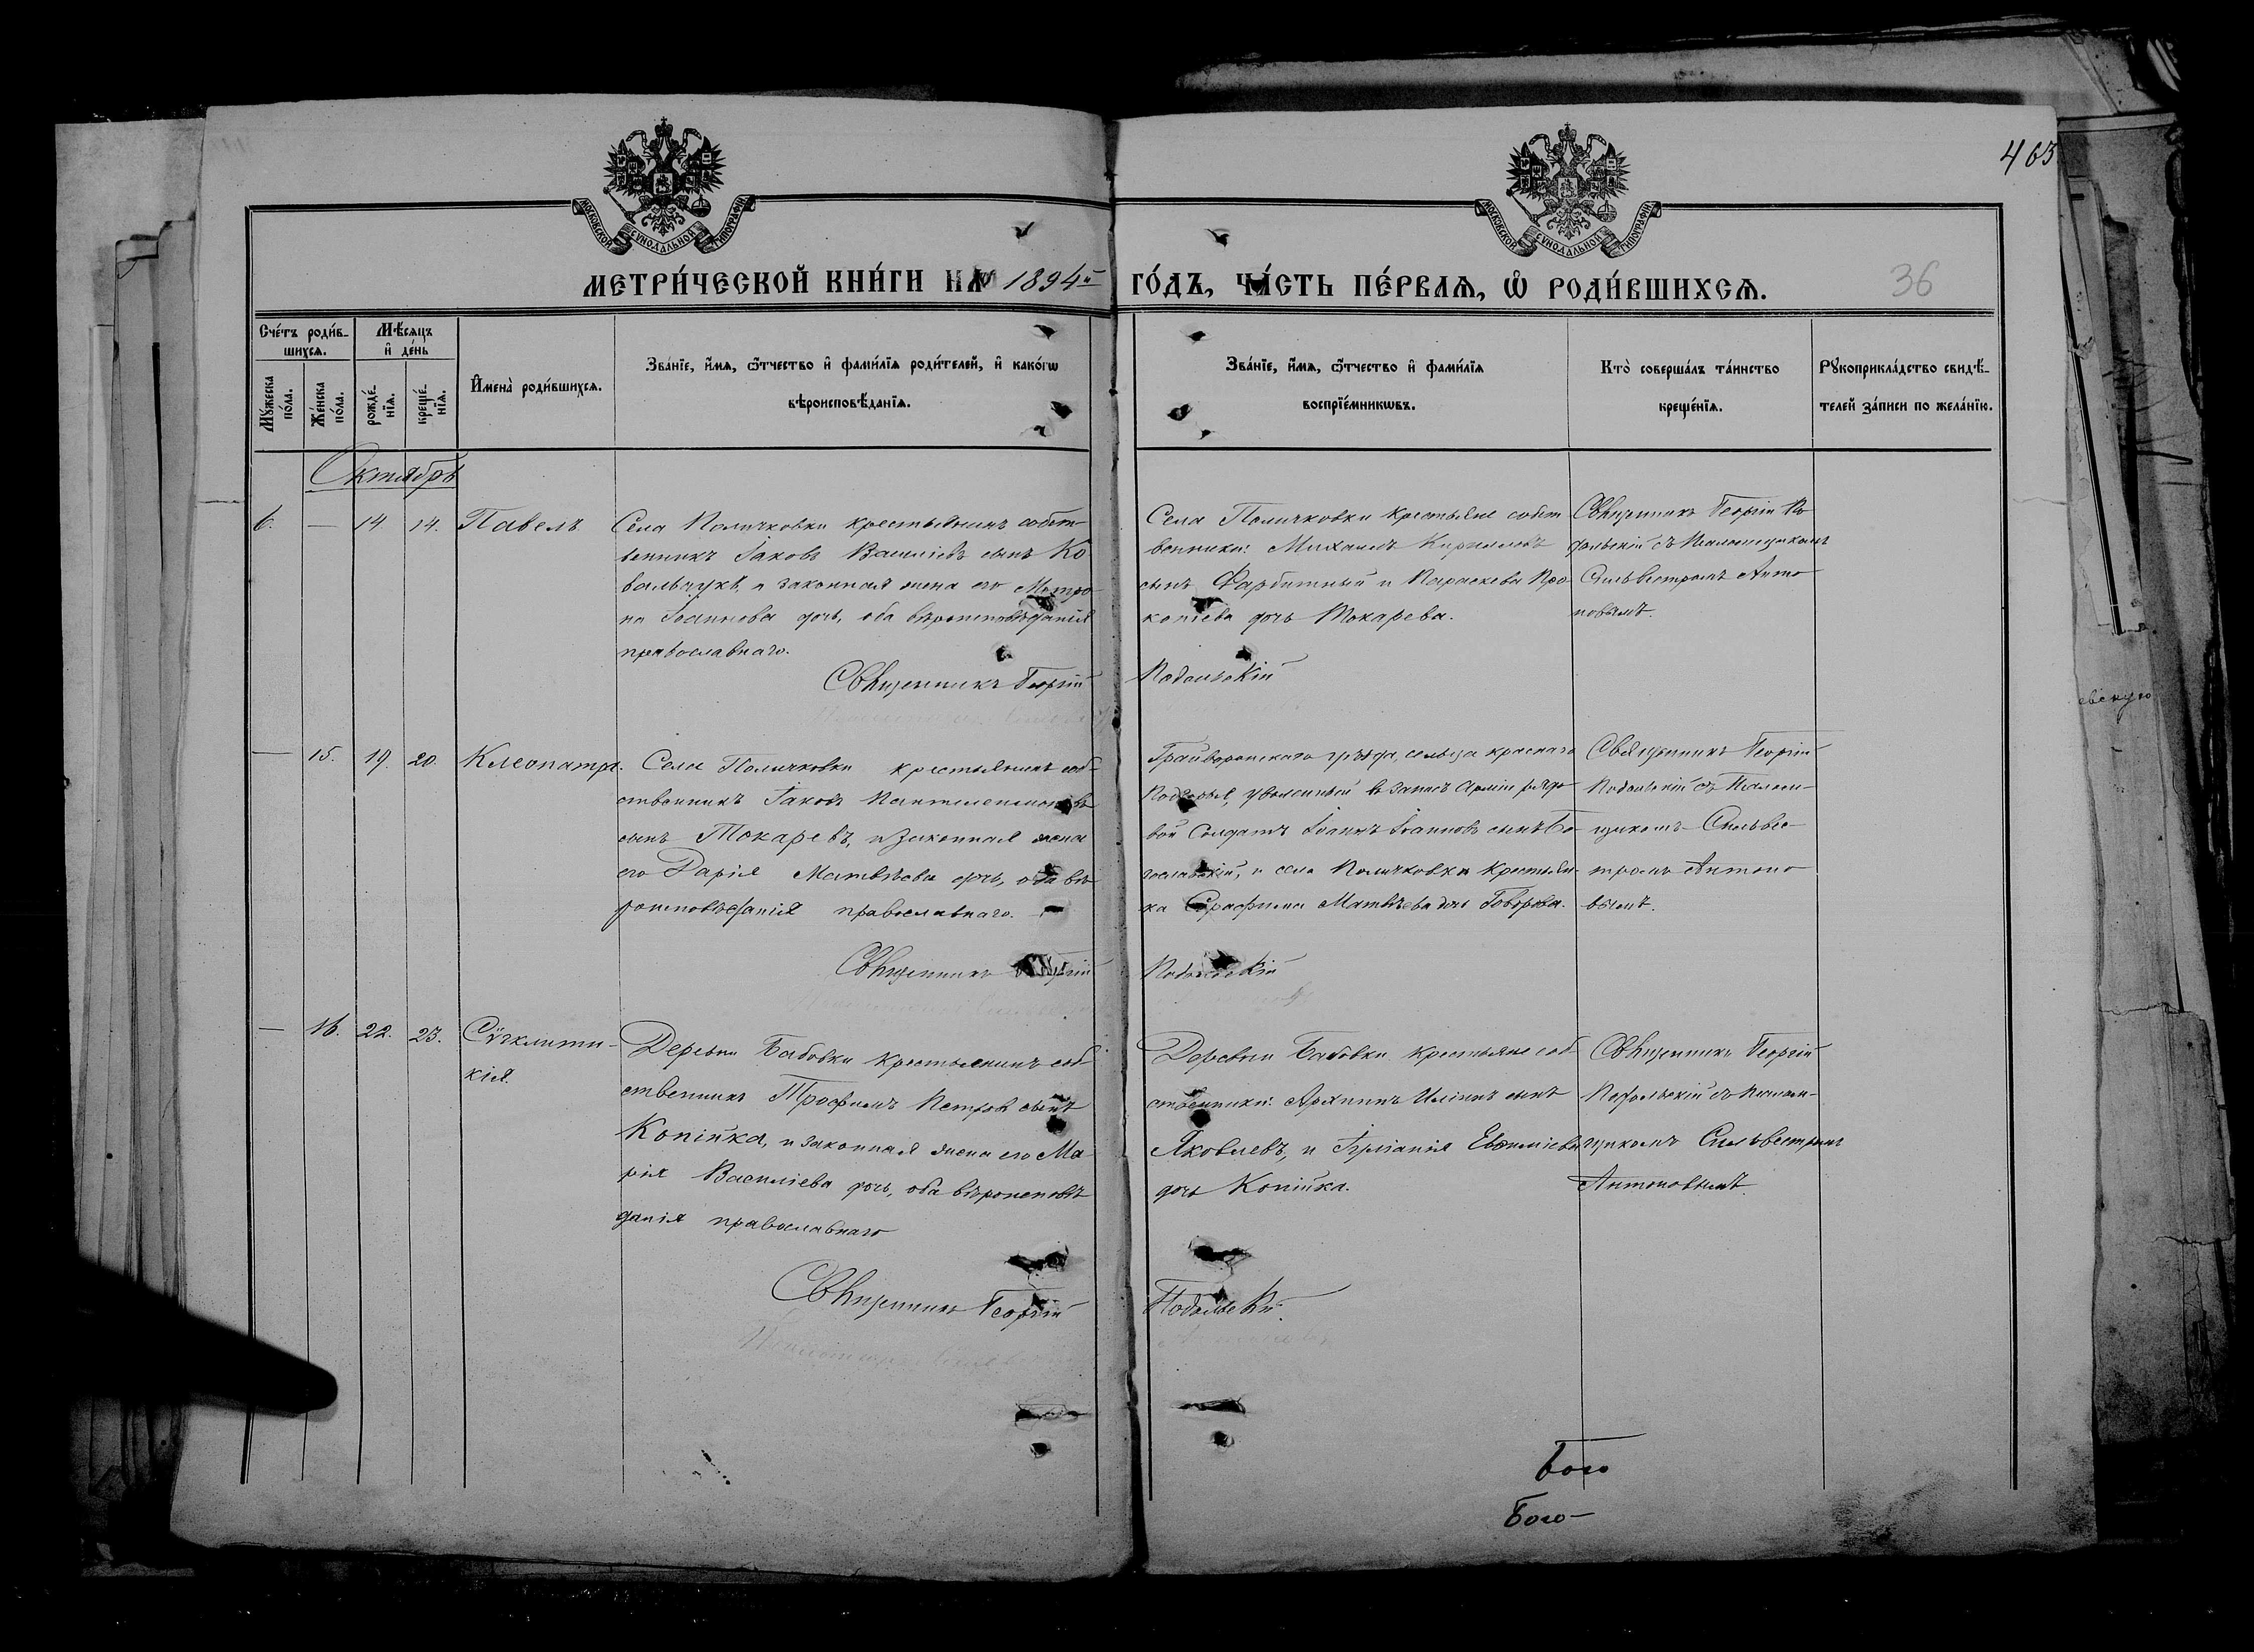 463
МОСКОВСКОЙ СѴНОДАЛЬНОЙ ТИПОГРАФІИ
МОСКОВСКОЙ СѴНОДАЛЬНОЙ ТИПОГРАФІИ
МЕТРИ́ЧЕСКОЙ КНИ́ГИ НА 1894й ГО́ДЪ, ЧА́СТЬ ПЕ́РВАѦ, Ѡ҆ РОДИ́ВШИХСѦ.
36
Сче́тъ роди́в-
шихсѧ.
Мѣсѧцъ
и҆ де́нь
Мꙋ́жеска
по́ла.
Же́нска
по́ла.
рожде́-
нїѧ.
креще́-
нїѧ.
И҆мена̀ роди́вшихсѧ.
Зва́нїе, и҆́мѧ, ѻ҆́тчество и҆ фами́лїѧ роди́телей, и҆ како́гѡ
вѣроисповѣ́данїѧ.
Зва́нїе, и҆́мѧ, ѻ҆́тчество и҆ фами́лїѧ
воспрїе́мникѡвъ.
Кто̀ соверша́лъ та́инство
креще́нїѧ.
Рꙋкоприкла́дство свидѣ́-
телей за́писи по жела́нїю.
Октябрь
6. — 14 14. Павелъ
Села Поличковки крестьянинъ собст
венникъ Іаковъ Василіевъ сынъ Ко
вальчукъ, и законная жена его Матро
на Іоаннова дочь, оба вѣроисповѣданія
православнаго.
Села Поличковки крестьяне собст
венники: Михаилъ Кирилловъ
сынъ Фарбитный и Параскева Про
копіева дочь Токарева.
Священникъ Георгій По
дольскій съ Псаломщикомъ
Сильвестромъ Анто
новымъ.
Священникъ Георгій Подольскій
— 15. 19. 20. Клеопатра.
Села Поличковки крестьянинъ соб-
ственникъ Іаковъ Пантелеимоновъ
сынъ Токаревъ, и законная жена
его Дарія Матвѣева дочь, оба вѣ
роисповѣданія православнаго.
Грайворонскаго уѣзда, сельца краснаго
уволенный въ запасъ Арміи рядо
вой Солдатъ Іоаннъ Іоанновъ сынъ Бо
гославскій, и села Поличковки крестьян-
ка Серафима Матвѣева дочь Говорова.
Священникъ Георгій
Подольскій съ Псалом-
щикомъ Сильвес-
тромъ Антоно
вымъ.
Священникъ Георгій Подольскій
— 16. 22. 23. Сѵгклити-
кія.
Деревни Бабовки крестьянинъ соб
ственникъ Трофимъ Петровъ сынъ
Копійка, и законная жена его Ма
рія Василіева дочь, оба вѣроисповѣ
данія православнаго
Деревни Бабовки крестьяне соб
ственники: Архипъ Иліинъ сынъ
Яковлевъ, и Евѳиміева
дочь Копійка.
Священникъ Георгій
Подольскій съ Псалом-
щикомъ Сильвестромъ
Антоновымъ.
Священникъ Георгій Подольскій.
Бого
Бого-